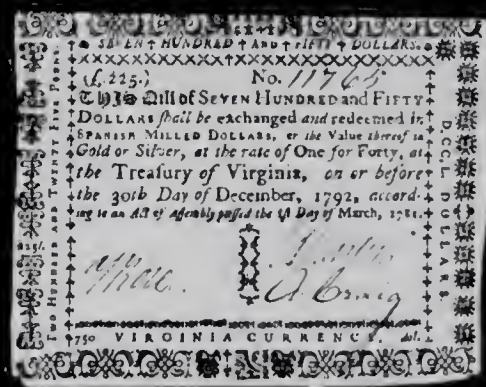 SEVEN HUNDRED AND FIFTY DOLLARS.
(£.225.) No. 11765
THIS Bill of SEVEN HUNDRED and FIFTY
DOLLARS ſhall be exchanged and redeemed in
SPANISH MILLED DOLLARS, or the Value thereof in
Gold or Silver, at the rate of One for Forty, at
the Treaſury of Virginia, on or before
the 30th Day of December, 1792, accord-
ing to an Act of Aſſembly paſſed the Day of March, 1781.
A. Craig
750 VIRGINIA CURRENCY. dol.
TWO HUNDRED AND TWENTY FIVE POUNDS
D.CC.L DOLLARS.